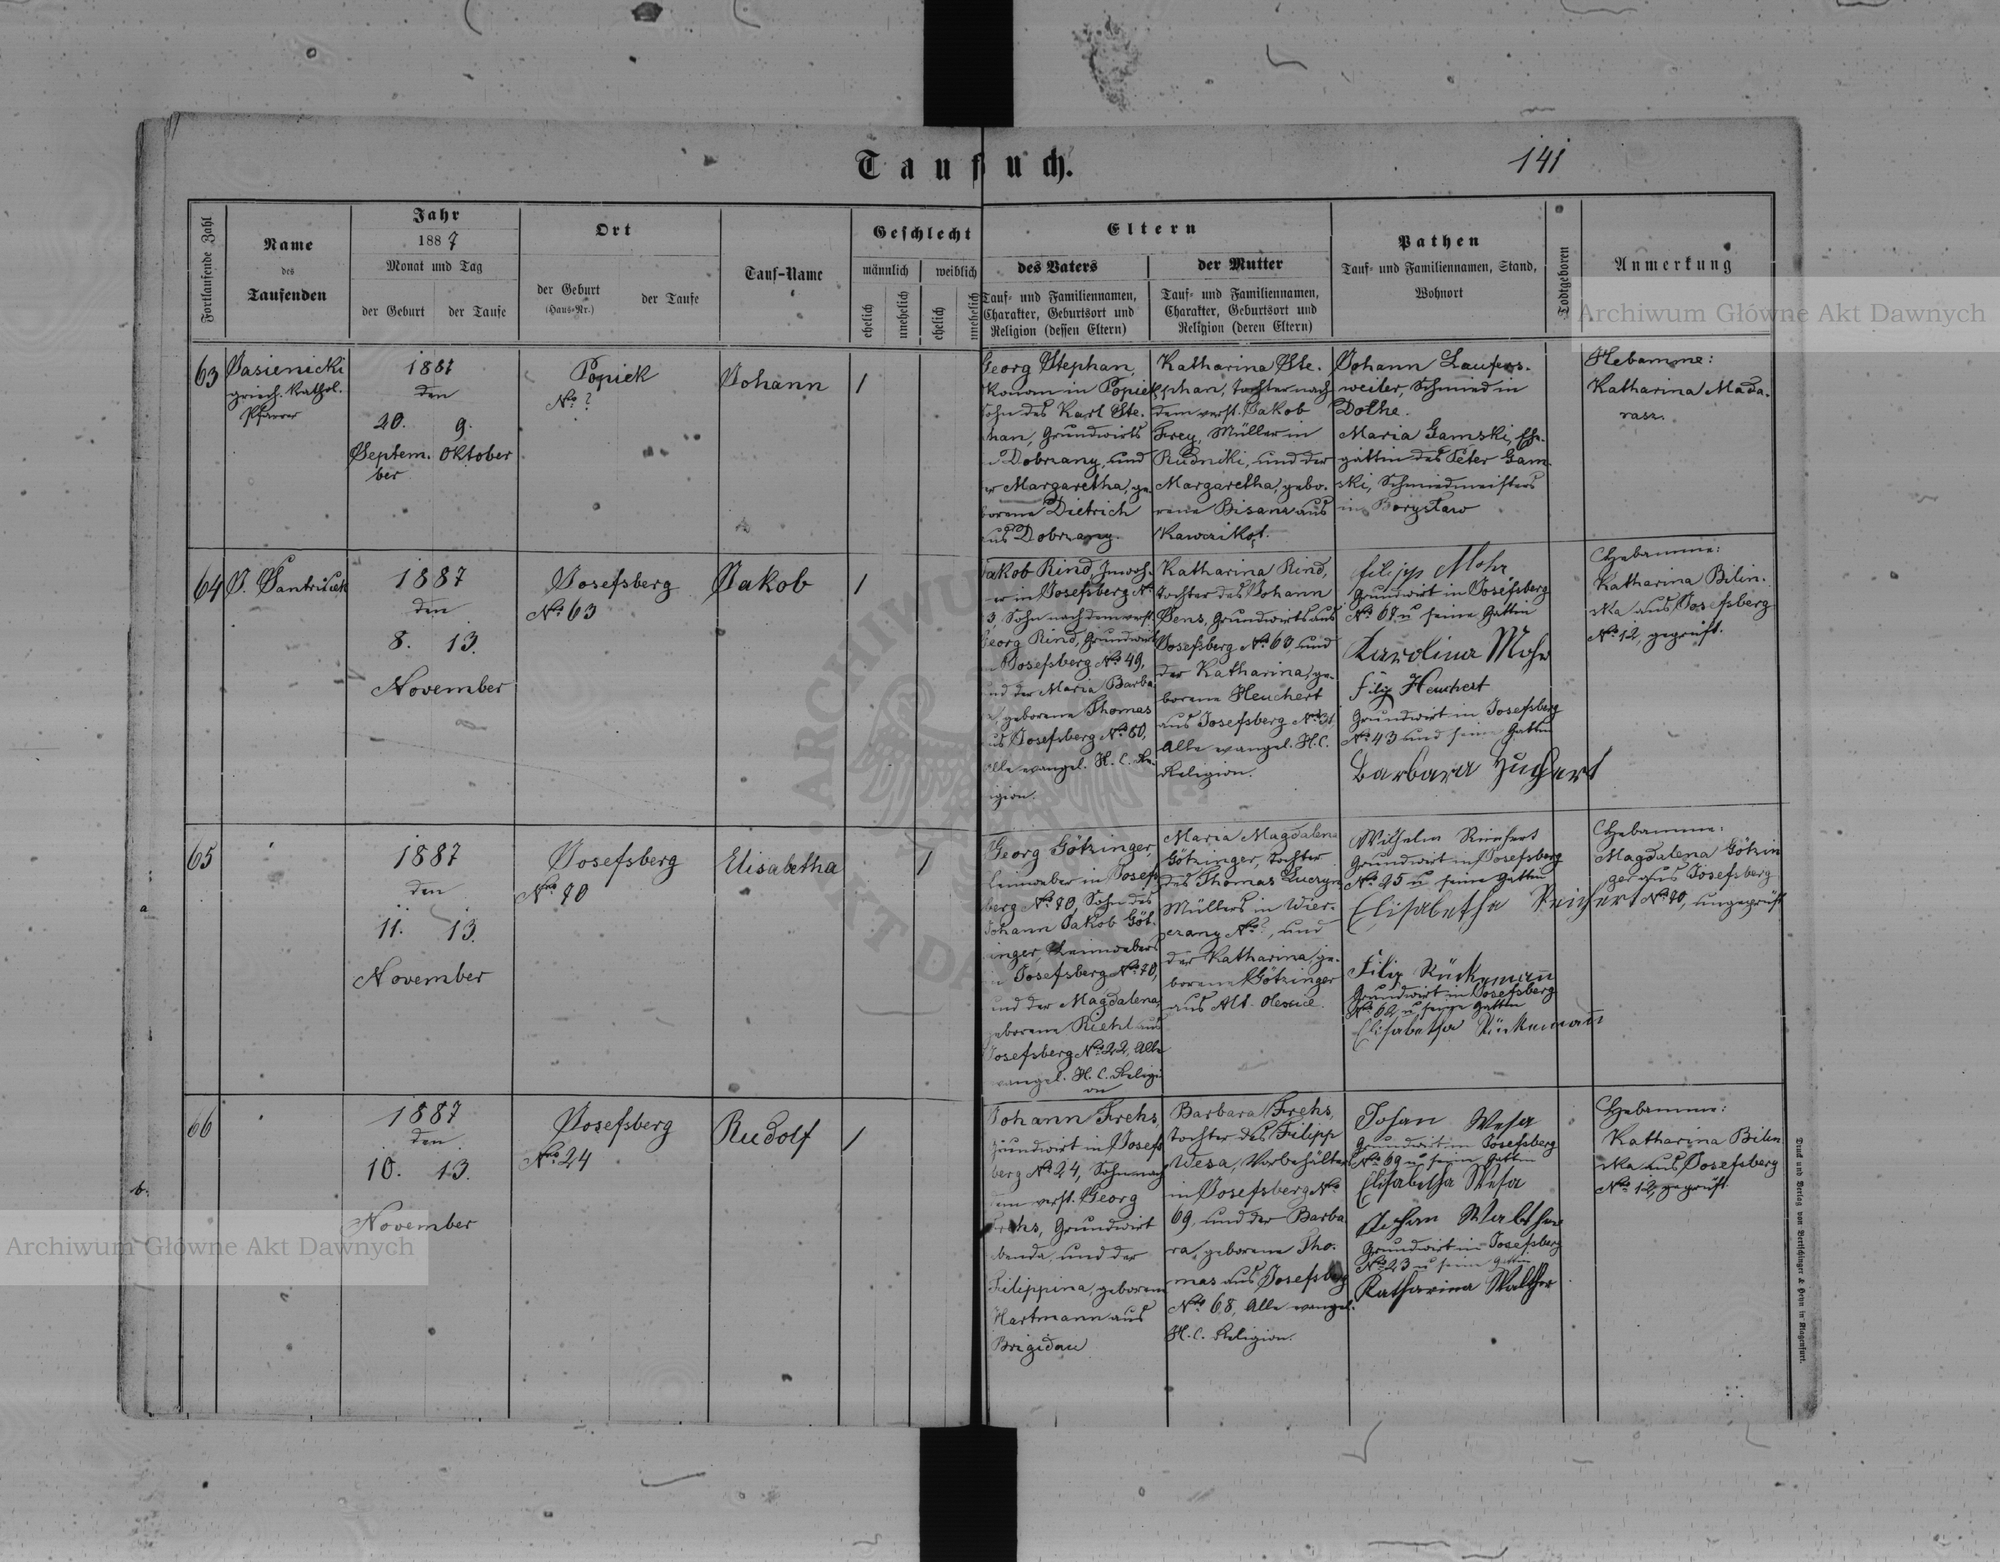 Taufbuch.
141
Fortlaufende Zahl
Name
des
Taufenden
Jahr
1887
Monat und Tag
der Geburt
der Taufe
Ort
der Geburt
(Haus-Nr.)
der Taufe
Tauf-Name
Geschlecht
männlich
weiblich
ehelich
unehelich
ehelich
unehelich
Eltern
des Vaters
Tauf- und Familiennamen,
Charakter, Geburtsort und
Religion (dessen Eltern)
der Mutter
Tauf- und Familiennamen,
Charakter, Geburtsort und
Religion (deren Eltern)
Pathen
Tauf- und Familiennamen, Stand,
Wohnort
Todtgeboren
Anmerkung
63
Jasienicki
griech. kathol.
Pfarrer
1887
den
20. 9.
Septem. Oktober
ber
Popiek
No ?
Johann
1
Georg Stephan,
Ökonom in Popiek
Sohn des Karl Ste-
phan, Grundwirts
in Dobrzany, und
der Margaretha, ge-
borene Dietrich
aus Dobrzany.
Katharina Ste-
phan, tochter nach
dem verst. Jakob
Frey, Müller in
Rudniki, und der
Margaretha, gebo-
rene Bisanz aus
Kawczikąt.
Johann Laufers-
weiler, Schmied in
Dolhe.
Maria Gamski, Eh-
gattin des Peter Gam-
ski, Schmiedmeisters
in Borysław
Hebamme:
Katharina Mada-
rasz.
64
1887
den
8. 13.
November
Josefsberg
No 63
Jakob
1
Jakob Rind, Inwoh-
ner in Josefsberg No
3, Sohn nach dem verst.
Georg Rind, Grundwirt
in Josefsberg No 49,
und der Maria Barba-
ra, geborene Thomas
aus Josefsberg No 60,
Alle evangel. H. C. Re-
ligion.
Katharina Rind,
tochter des Johann
Sens, Grundwirts aus
Josefsberg No 60, und
der Katharina, ge-
borene Heuchert
aus Josefsberg No 31,
Alle evangel. H. C.
Religion.
Filipp Mohr
Grundwirt in Josefsberg
No 67 u seine Gattin
Karolina Mohr
Filip Heuchert
Grundwirt in Josefsberg
No 43 und seine Gattin
Barbara
Hebamme:
Katharina Bilin-
ska aus Josefsberg
No 12, geprüft.
65
1887
den
11. 13.
November
Josefsberg
Nro 70
Elisabetha
1
Georg Götzinger,
Leinweber in Josefs-
berg No 70, Sohn des
Johann Jakob Göt-
zinger, Leinwebers
in Josefsberg No 70,
und der Magdalena,
geborene Riehl aus
Josefsberg No 22, Alle
evangel. H. C. Religi
on
Maria Magdalena
Götzinger, tochter
des Thomas
Müllers in Wier-
czany No ?, und
der Katharina, ge-
borene Götzinger
aus Alt-Oleszice.
Wilhelm Reichert
Grundwirt in Josefsberg
No 25 u seine Gattin
Elisabetha Reichert
Filip Rückemann
Grundwirt in Josefsberg
No 62 u seine Gattin
Elisabetha Rückemann
Hebamme:
Magdalena Götzin
ger aus Josefsberg
No 70, ungeprüft
66
1887
den
10. 13.
November
Josefsberg
Nro 24
Rudolf
1
Johann Frehs,
Grundwirt in Josefs
berg No 24, Sohn nach
dem verst. Georg
Frehs, Grundwirt
ebenda, und der
Filippina, geborene
Hartmann aus
Brigidau
Barbara Frehs,
tochter des Filipp
Wesa, Vorbehälter
in Josefsberg No
69, und der Barba
ra, geborene Tho-
mas aus Josefsberg
No 68, Alle evangel.
H. C. Religion.
Johan Wesa
Grundwirt in Josefsberg
No 69 u seine Gattin
Elisabetha Wesa
Johan Walther
Grundwirt in Josefsberg
No 23 u seine Gattin
Katharina Walther
Hebamme:
Katharina Bilin
ska aus Josefsberg
No 12, geprüft.
a
b.
Druck und Verlag von Bertschinger & Heyn in Klagenfurt.
Archiwum Główne Akt Dawnych
Archiwum Główne Akt Dawnych